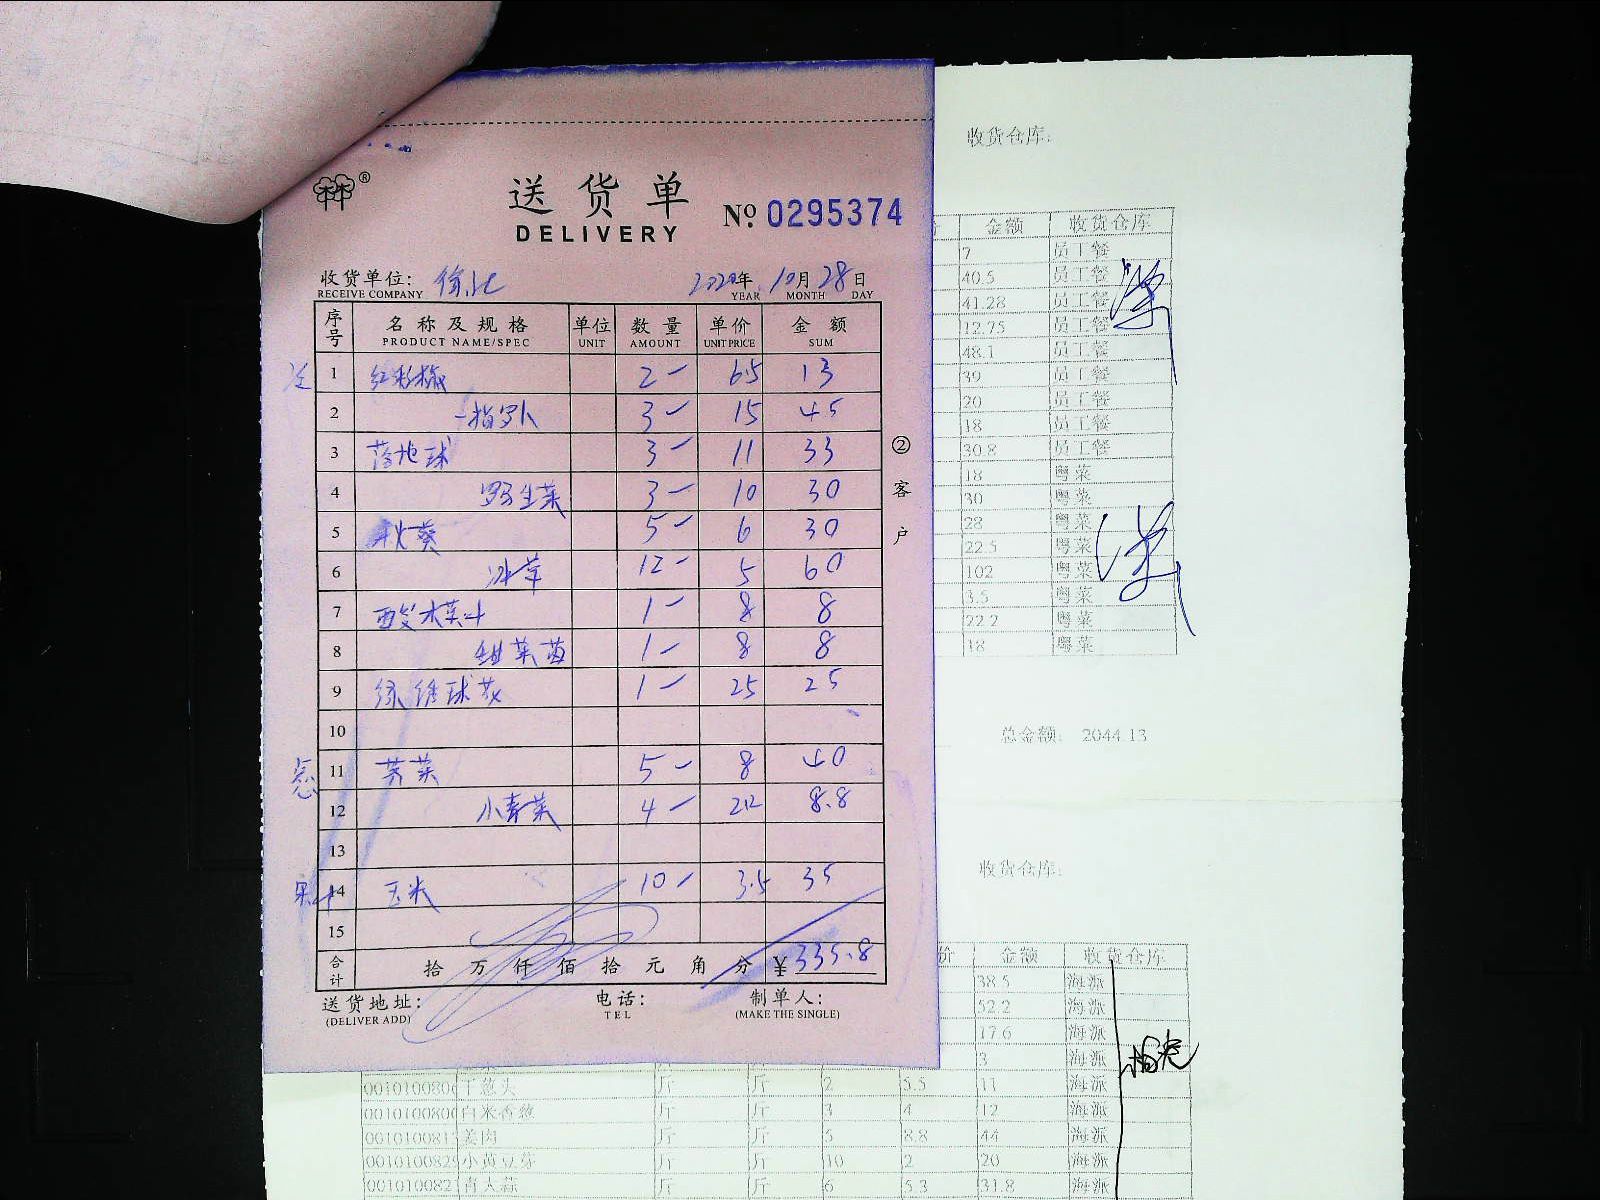 送货单
DELIVERY
№ 0295374
收货单位: 徐北
RECEIVE COMPANY
2020年 10月 28日
YEAR MONTH DAY
序号 名称及规格 单位 数量 单价 金额
PRODUCT NAME/SPEC UNIT AMOUNT UNIT PRICE SUM
1 红彩椒 2 6.5 13
2 一指罗卜 3 15 45
3 落地球 3 11 33
4 罗马生菜 3 10 30
5 秋葵 5 6 30
6 冰草 12 5 60
7 酸木菜叶 1 8 8
8 甜菜苗 1 8 8
9 绿绣球花 1 25 25
10
点心 11 荠菜 5 8 40
12 小青菜 4 2.2 8.8
13
14 玉米 10 3.5 35
15
合计 拾 万 仟 佰 拾 元 角 分 ¥335.8
送货地址: 电话: 制单人:
(DELIVER ADD) TEL (MAKE THE SINGLE)
②客户
收货仓库:
金额 收货仓库
7 员工餐
40.5 员工餐
41.28 员工餐
12.75 员工餐
48.1 员工餐
39 员工餐
20 员工餐
18 员工餐
30.8 员工餐
18 粤菜
30 粤菜
28 粤菜
22.5 粤菜
102 粤菜
3.5 粤菜
22.2 粤菜
18 粤菜
总金额: 2044.13
收货仓库:
价 金额 收货仓库
38.5 海派
52.2 海派
17.6 海派
3 海派
干葱头 斤 斤 2 5.5 11 海派
白米香葱 斤 斤 3 4 12 海派
姜肉 斤 斤 5 8.8 44 海派
小黄豆芽 斤 斤 10 2 20 海派
青大蒜 斤 斤 6 5.3 31.8 海派